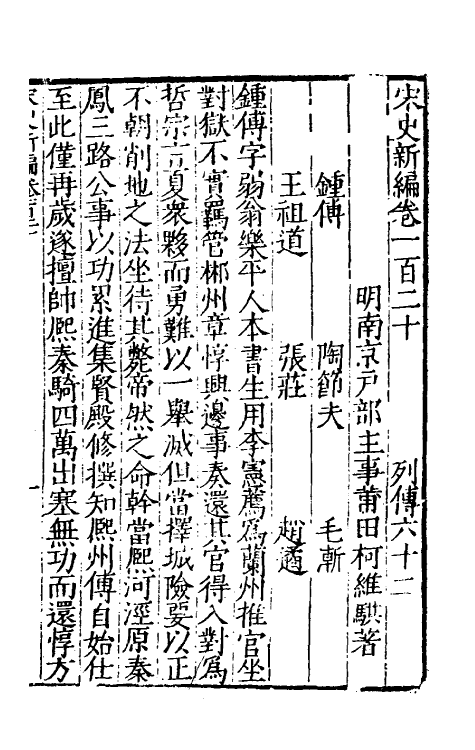 宋史新編卷一百二十　列傳六十二
明南京戸部主事莆田柯維騏著
鍾傳　陶節夫　毛漸
王祖道　張莊　趙遹
鍾傳字弱翁樂平人本書生用李憲薦爲蘭州推官坐
對獄不實羈管郴州章惇興邊事奏還其官得入對爲
哲宗言夏衆夥而勇難以一舉滅但當擇城險要以正
不朝削地之法坐待其斃帝然之命幹當熙河涇原秦
鳳三路公事以功累進集賢殿修撰知熙州傳自始仕
至此僅再歲遂擅帥熙秦騎四萬出塞無功而還惇方
宋史新編卷百二十
一